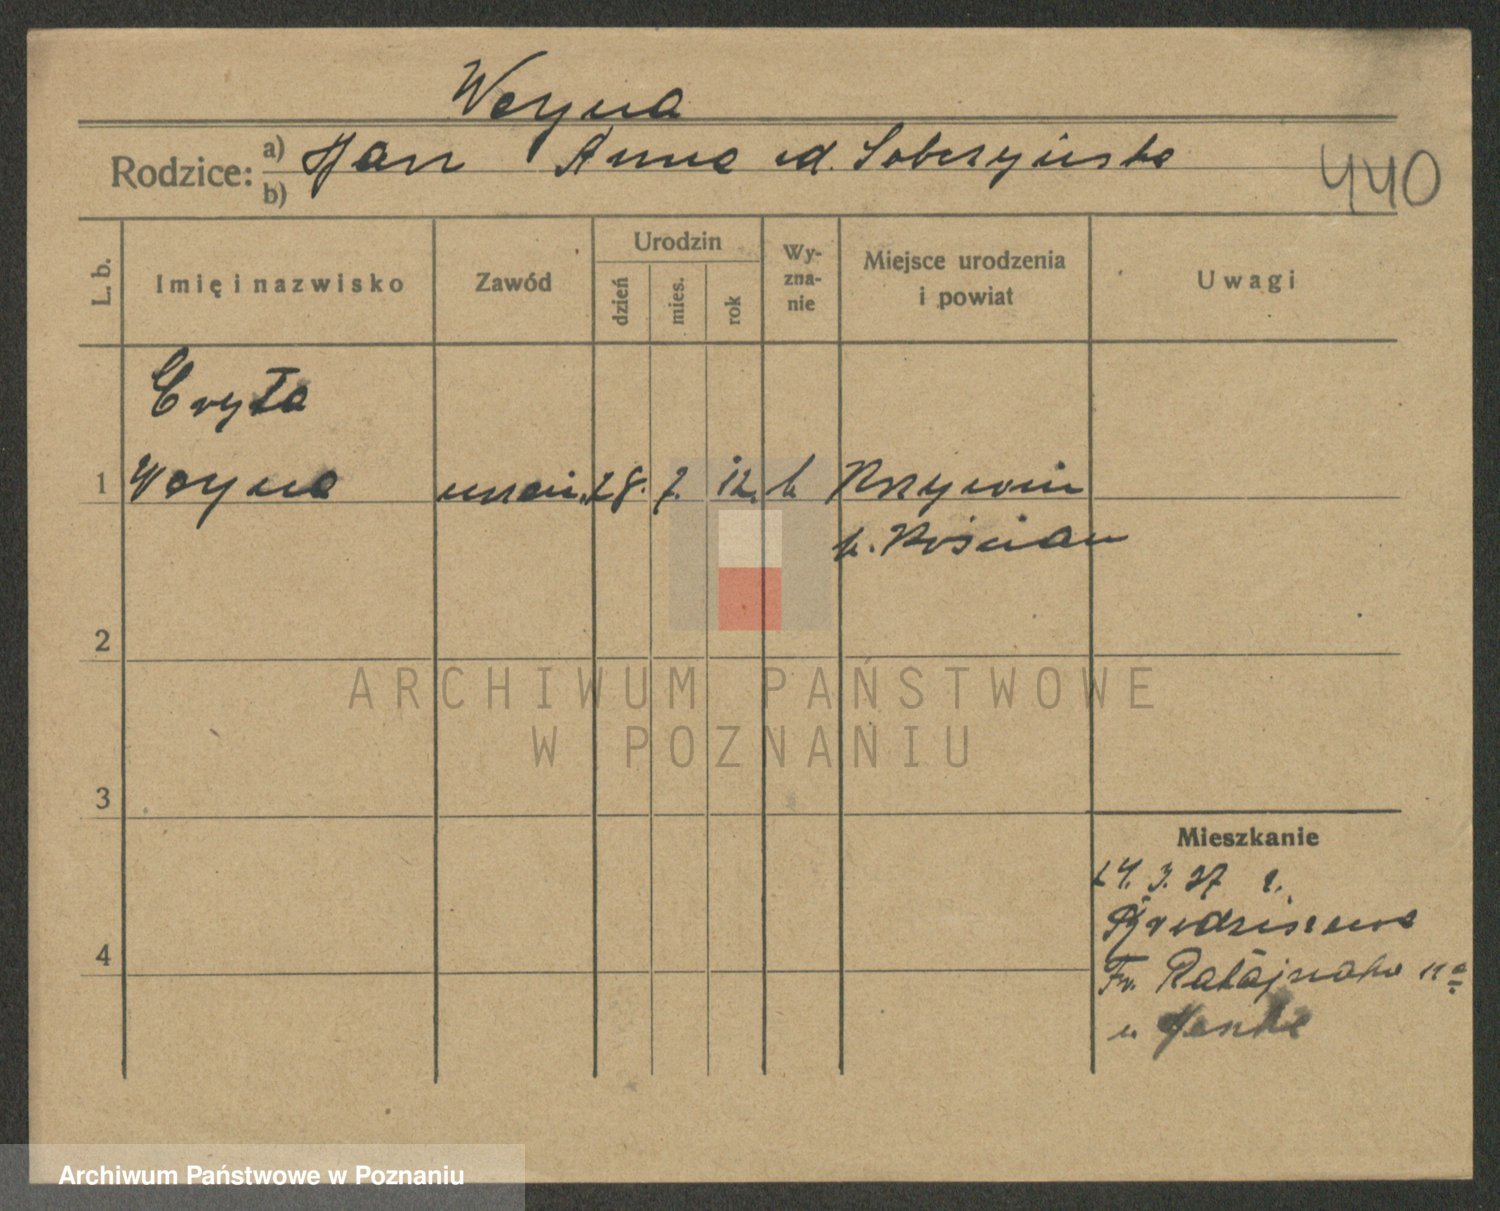 Woyna
Rodzice: a) Jan Anna
b)
440
L. b. Imię i nazwisko Zawód Urodzin dzień mies. rok Wyznanie Miejsce urodzenia i powiat Uwagi
Edyta
1 Woyna 28. 7. 12. k
k. Kościan
2
3
Mieszkanie
24. 3. 37 r.
4
Fr. Ratajczaka 11a
u
ARCHIWUM PAŃSTWOWE
W POZNANIU
Archiwum Państwowe w Poznaniu